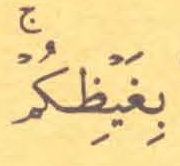 بِغَيْظِكُمْ ۚ